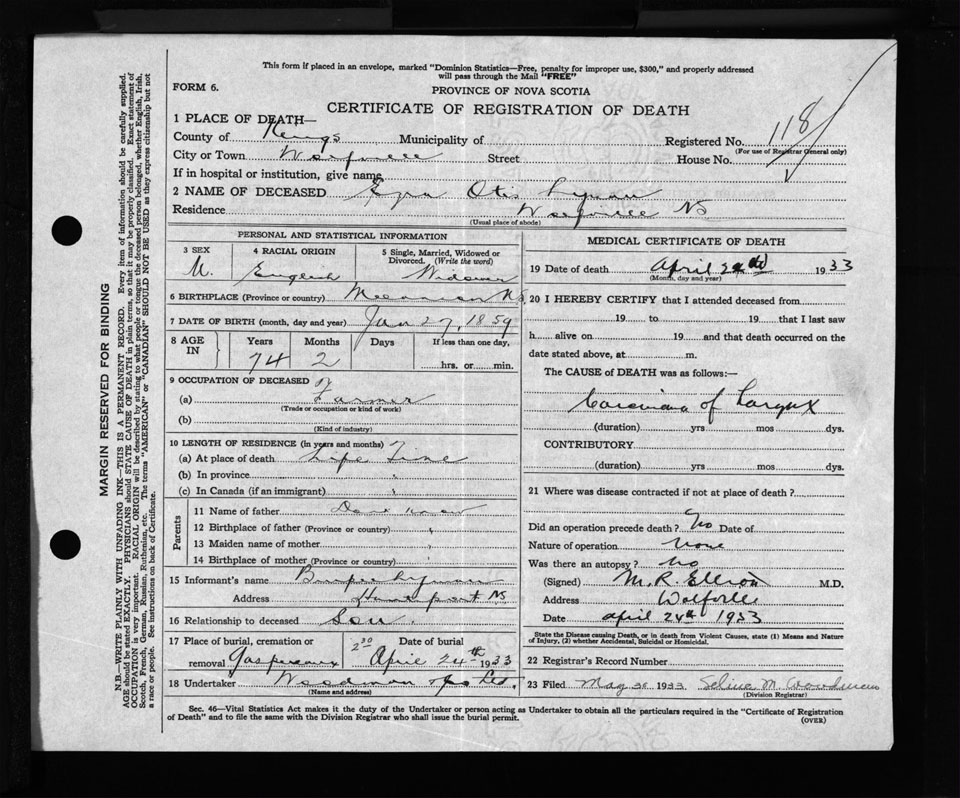 This form if placed in an envelope, marked "Dominion Statistics—Free, penalty for improper use, $300," and properly addressed
will pass through the Mail "FREE"
FORM 6.
PROVINCE OF NOVA SCOTIA
CERTIFICATE OF REGISTRATION OF DEATH
1 PLACE OF DEATH—
County of Kings Municipality of Registered No. 118
(For use of Registrar General only)
City or Town Wolfville Street House No.
If in hospital or institution, give name
2 NAME OF DECEASED Ezra Otis Lyman
Residence Wolfville NS
(Usual place of abode)
PERSONAL AND STATISTICAL INFORMATION
3 SEX 4 RACIAL ORIGIN 5 Single, Married, Widowed or
Divorced. (Write the word)
M. English Widower
6 BIRTHPLACE (Province or country) N.S.
7 DATE OF BIRTH (month, day and year) Jan 27, 1859
8 AGE IN Years Months Days If less than one day,
74 2 hrs. or min.
9 OCCUPATION OF DECEASED
(a) Farmer
(Trade or occupation or kind of work)
(b)
(Kind of industry)
10 LENGTH OF RESIDENCE (in years and months)
(a) At place of death Life Time
(b) In province
(c) In Canada (if an immigrant)
Parents
11 Name of father Dont know
12 Birthplace of father (Province or country) "
13 Maiden name of mother "
14 Birthplace of mother (Province or country) "
15 Informant's name Lyman
Address Hantsport NS
16 Relationship to deceased Son.
17 Place of burial, cremation or Date of burial
removal Gaspereaux 2 30 April 24th 1933
18 Undertaker Woodman Ltd.
(Name and address)
MEDICAL CERTIFICATE OF DEATH
19 Date of death April 1933
(Month, day and year)
20 I HEREBY CERTIFY that I attended deceased from
19 to 19 that I last saw
h alive on 19 and that death occurred on the
date stated above, at m.
The CAUSE of DEATH was as follows:—
Carcinoma of Larynx
(duration) yrs mos dys.
CONTRIBUTORY
(duration) yrs mos dys.
21 Where was disease contracted if not at place of death?
Did an operation precede death? No Date of
Nature of operation None
Was there an autopsy? No
(Signed) M.R. Elliott M.D.
Address Wolfville
Date april 24th 1933
State the Disease causing Death, or in death from Violent Causes, state (1) Means and Nature
of Injury, (2) whether Accidental, Suicidal or Homicidal.
22 Registrar's Record Number
23 Filed May 1933 M. Woodman
(Division Registrar)
Sec. 46—Vital Statistics Act makes it the duty of the Undertaker or person acting as Undertaker to obtain all the particulars required in the "Certificate of Registration
of Death" and to file the same with the Division Registrar who shall issue the burial permit.
(OVER)
MARGIN RESERVED FOR BINDING
N.B.—WRITE PLAINLY WITH UNFADING INK—THIS IS A PERMANENT RECORD. Every item of information should be carefully supplied.
AGE should be stated EXACTLY. PHYSICIANS should STATE CAUSE OF DEATH in plain terms, so that it may be properly classified. Exact statement of
OCCUPATION is very important. RACIAL ORIGIN will be described by stating to what people or tongue the deceased person belonged, whether English, Irish,
Scotch, French, German, Russian, Ruthenian, etc. The terms "AMERICAN" or "CANADIAN" SHOULD NOT BE USED as they express citizenship but not
a race or people. See instructions on back of Certificate.